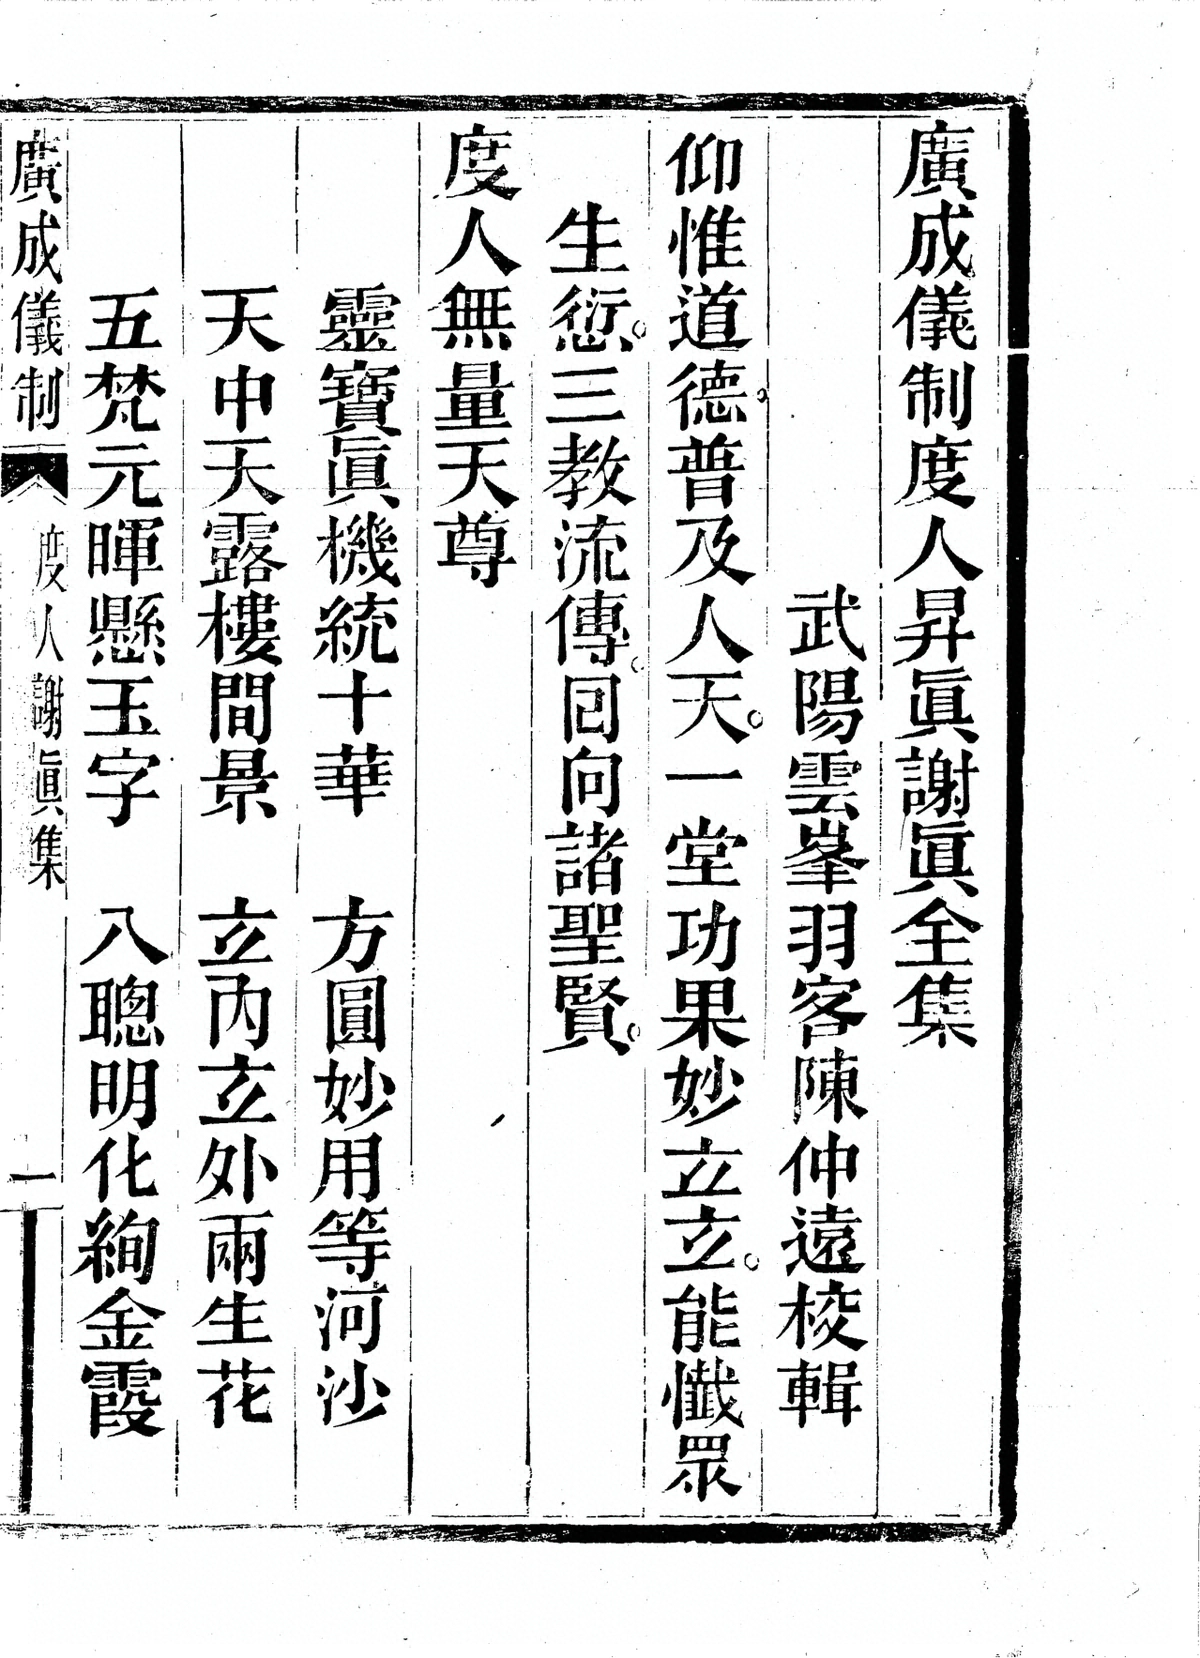 廣成儀制度人昇眞謝眞全集
武陽雲峯羽客陳仲遠校輯
仰惟道德。普及人天。一堂功果妙立立。能懺眾
生愆。三教流傳。回向諸聖賢。
度人無量天尊
靈寶眞機統十華　方圓妙用等河沙
天中天露樓間景　立內立外雨生花
五梵元暉懸玉字　八聰明化絢金霞
廣成儀制　度人謝眞集　一